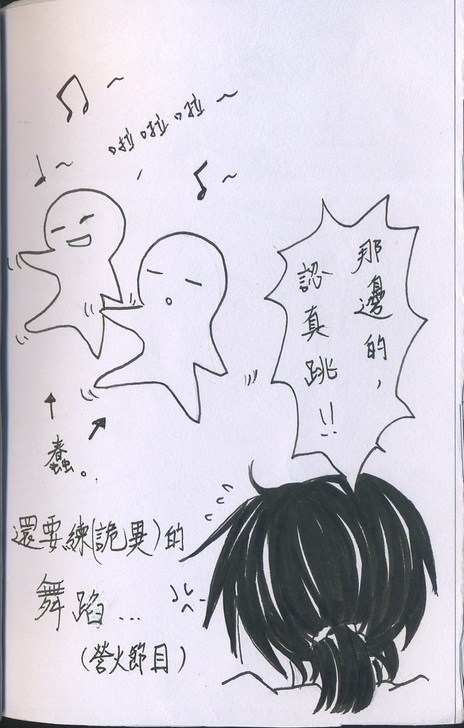 啦啦啦~
那邊的，
認真跳!!
蠢。
還要練(詭異)的
舞蹈...
(營火節目)